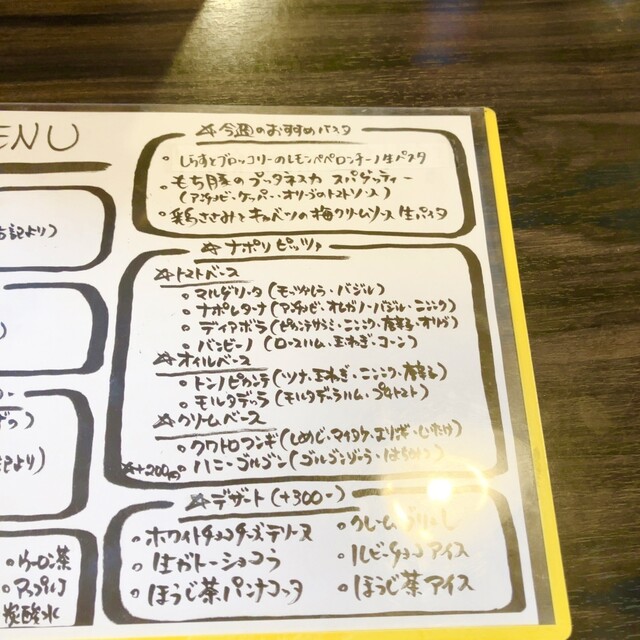 ENU
☆今週のおすすめパスタ
・しらすとブロッコリーのレモンペペロンチーノ生パスタ
・もち豚のプッタネスカ スパゲッティー
(アンチョビ・ケッパー・オリーブのトマトソース)
・鶏ささみとキャベツの梅クリームソース生パスタ
☆ナポリピッツァ
☆トマトベース
・マルゲリータ(モッツァレラ・バジル)
・ナポレターナ(アンチョビ・オレガノ・バジル・ニンニク)
・ディアボラ(ピカンテサラミ・ニンニク・唐辛子・オリーブ)
・バンビーノ(ロースハム・玉ねぎ・コーン)
☆オイルベース
・トンノピカンテ(ツナ・玉ねぎ・ニンニク・唐辛子)
・モルタデッラ(モルタデッラハム・プチトマト)
☆クリームベース
・クワトロフンギ(しめじ・マイタケ・エリンギ・しいたけ)
☆+200円・ハニーゴルゴン(ゴルゴンゾーラ・はちみつ)
☆デザート(+300-)
・ホワイトチョコチーズテリーヌ
・生ガトーショコラ
・ほうじ茶パンナコッタ
・クレームブリュレ
・ルビーチョコアイス
・ほうじ茶アイス
記より)
記より)
・ウーロン茶
・アップル
炭酸水